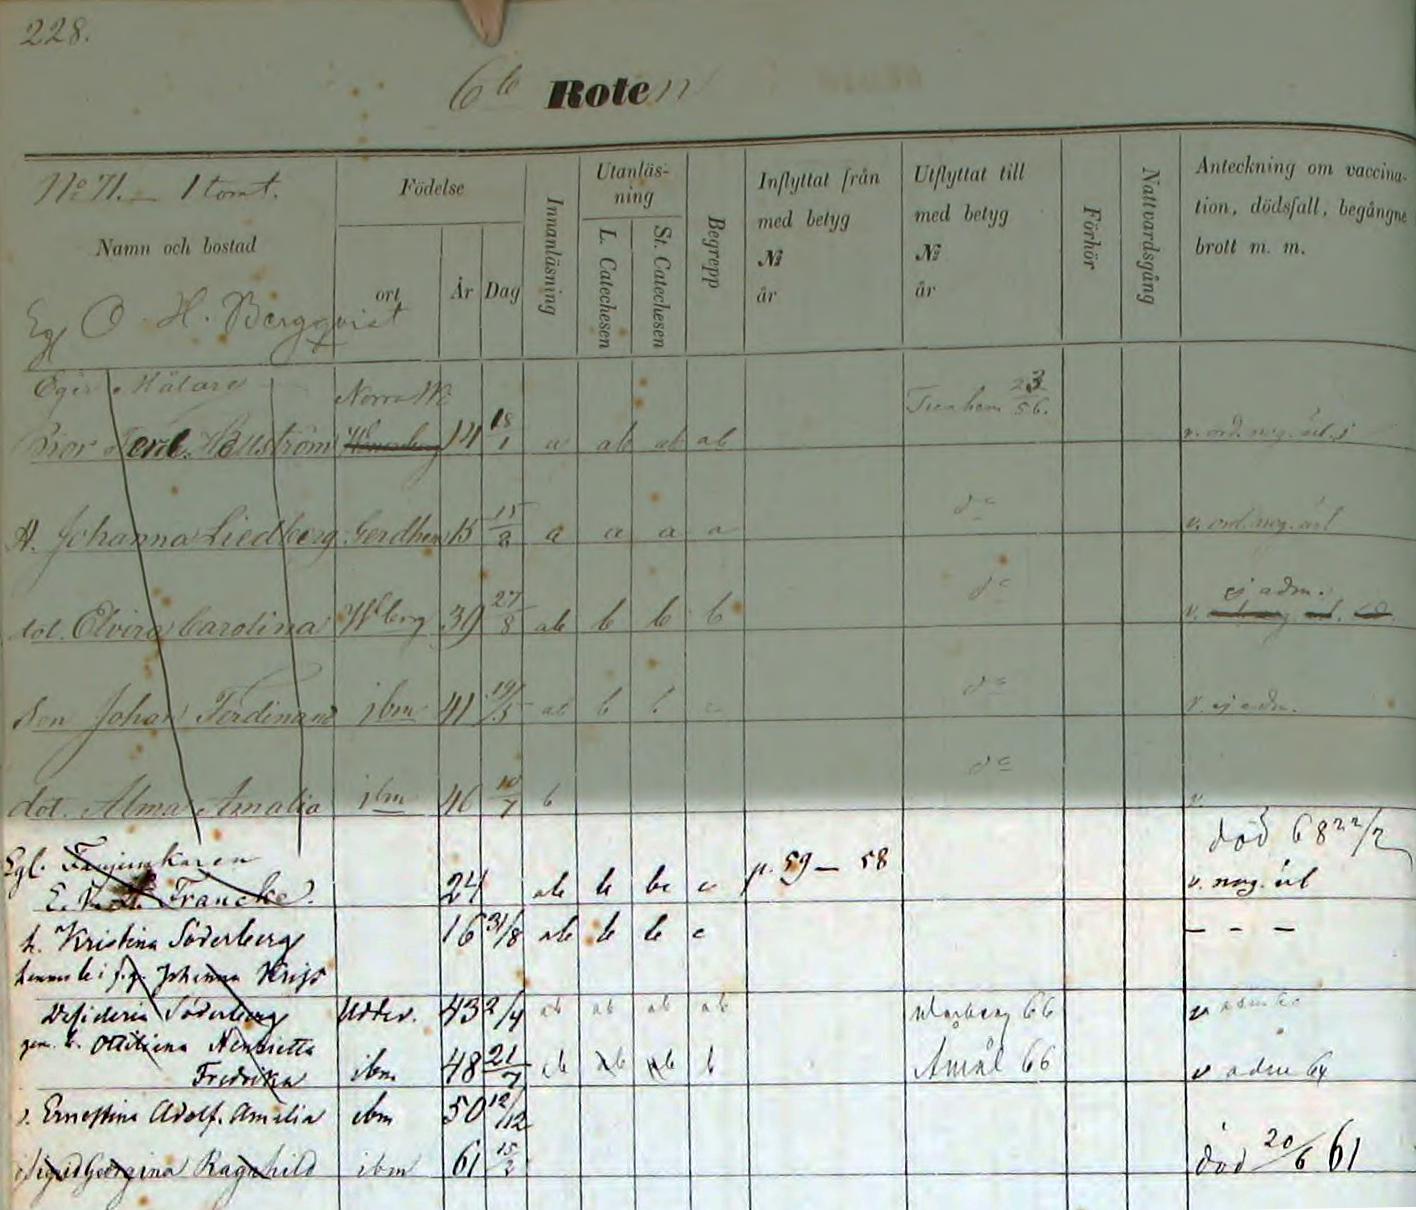 228.
6te Roten
No 71. — 1 tomt.
Namn och bostad
Födelse
ort
År
Dag
Innanläsning
Utanläs-
ning
L. Catechesen
St. Catechesen
Begrepp
Inflyttat från
med betyg
№
år
Utflyttat till
med betyg
№
år
Förhör
Nattvardsgång
Anteckning om vaccina-
tion, dödsfall, begångne
brott m. m.
Egl O. H. Bergqvist
Målare Norra
Ferd. Hallström 14 18/1 a ab ab ab 23/56.
H. Johanna Liedberg Gerdhem 15 15/8 a a a a do
dot. Elvira Carolina Wberg 39 27/8 ab b b b do ej adm.
v.
Son Johan Ferdinand ibm 41 19/5 ab b do v. ej adm.
dot. Alma Amalia ibm 46 10/7 b do v.
död 68 22/2
Egl.
E. Francke 24 ab b bc c p. 59 — 58 v. nög. utl
h. Kristina Söderberg 16 31/8 ab b b c — - —
Johanna
Desideria Söderberg Uddev. 43 2/4 ab ab ab ab 66 v
Ottiliana Henrietta
Fredrika ibm 48 21/7 b Åmål 66 v adm 64
Ernestina Adolf. Amalia ibm 50 12/12
Georgina Ragnhild ibm 61 död 20/6 61